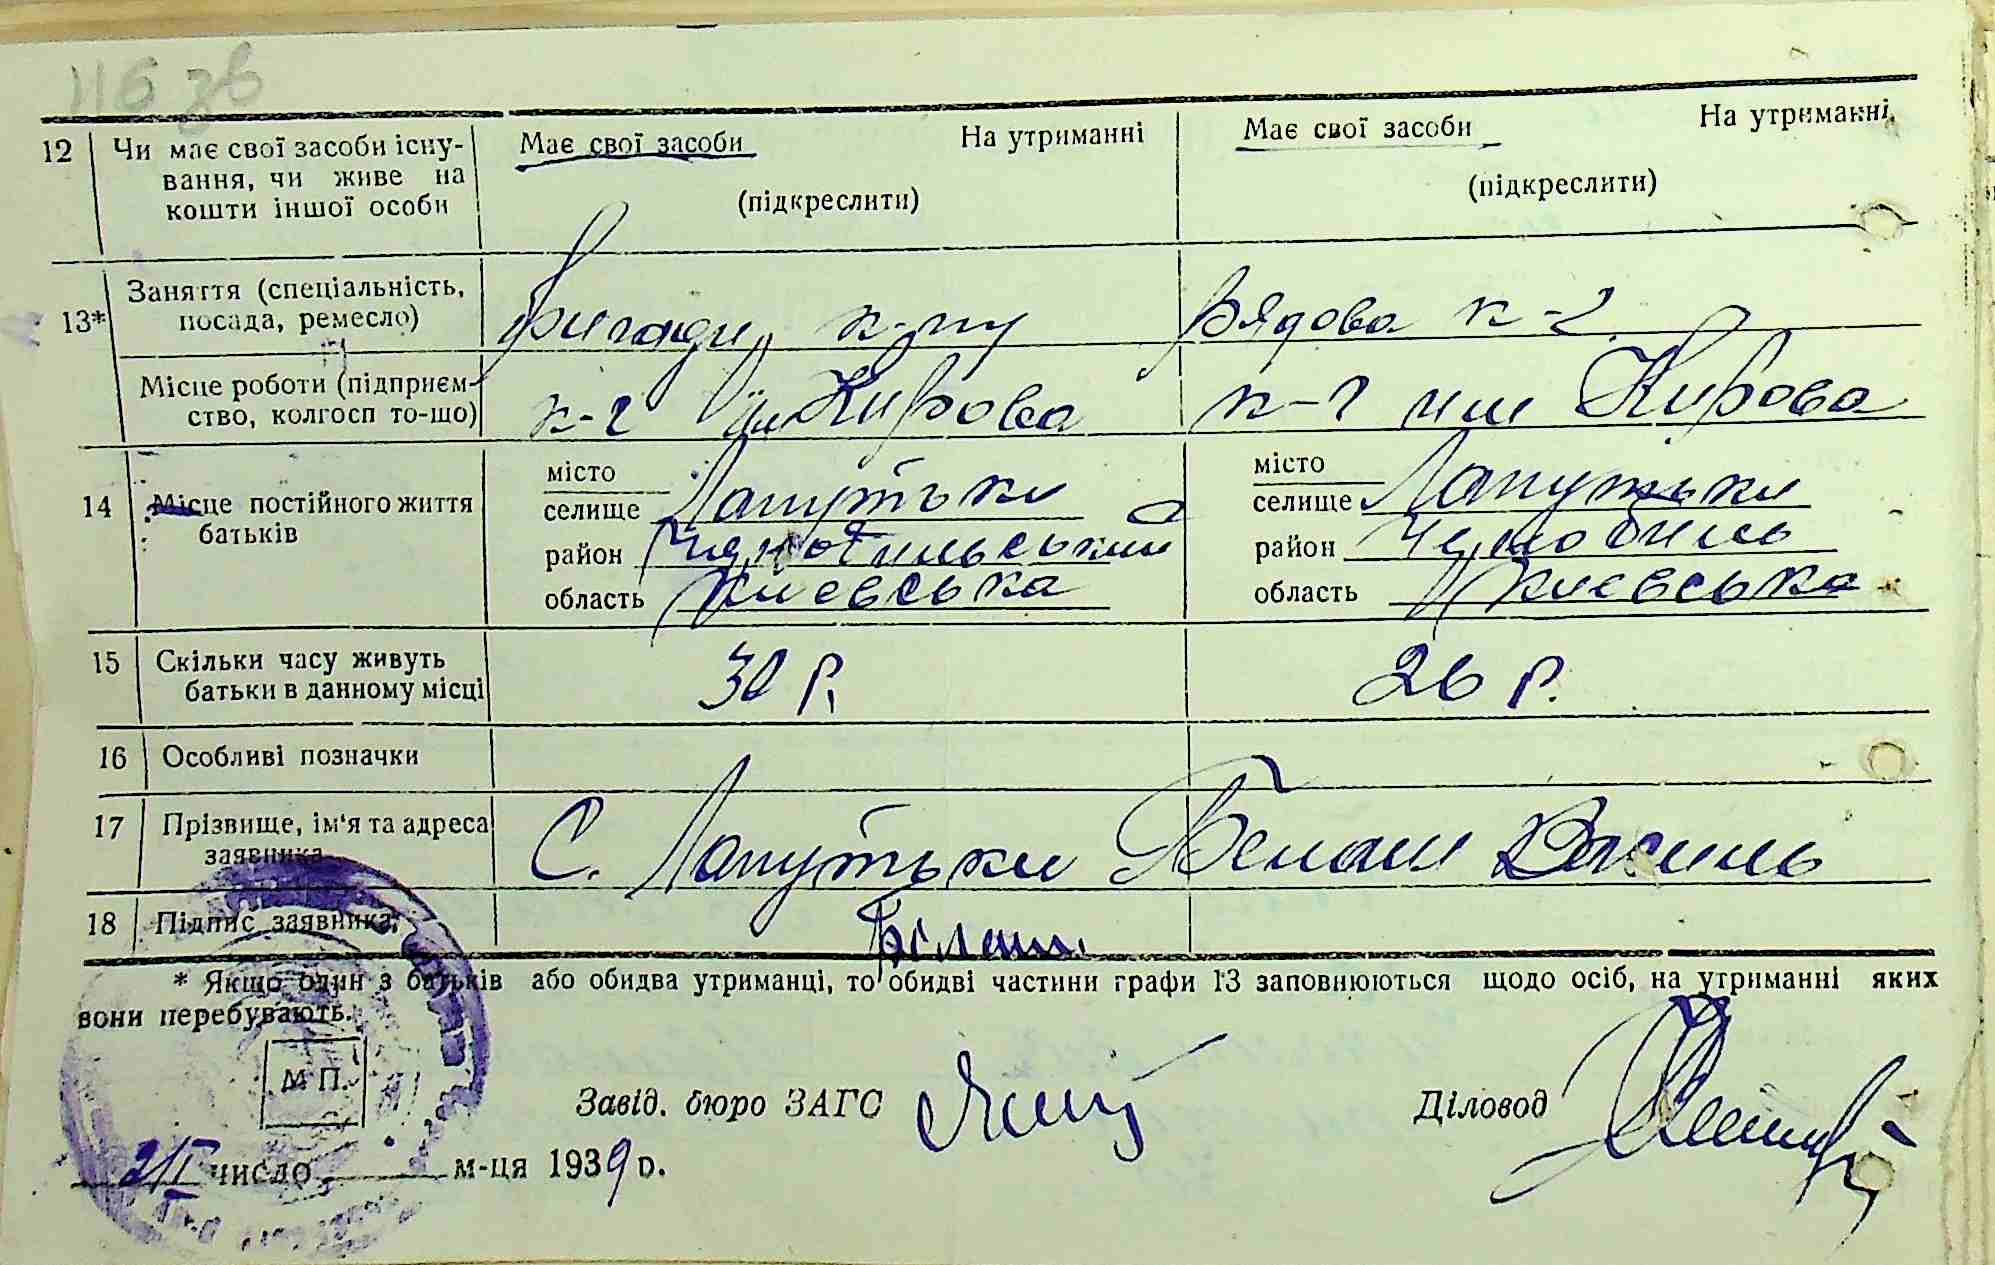 116 зв
12 Чи має свої засоби існу- Має свої засоби На утриманні Має свої засоби На утриманні
вання, чи живе на
кошти іншої особи (підкреслити) (підкреслити)
13* Заняття (спеціальність,
посада, ремесло) к-ту Рядова к-г
Місце роботи (підприєм-
ство, колгосп то-що) к-г ім Кирова к-г им Кирова
14 Місце постійного життя
батьків
місто місто
селище Лапутьки селище Лапутьки
район Чернобильський район Чернобиль
область Киевська область Киевська
15 Скільки часу живуть
батьки в данному місці 30 р. 26 р.
16 Особливі позначки
17 Прізвище, ім'я та адреса
заявника С. Лапутьки Белаш Василь
18 Підпис заявника Белаш
* Якщо один з батьків або обидва утриманці, то обидві частини графи 13 заповнюються щодо осіб, на утриманні яких
вони перебувають.
М П.
Завід. бюро ЗАГС Діловод
2/I число м-ця 1939 р.